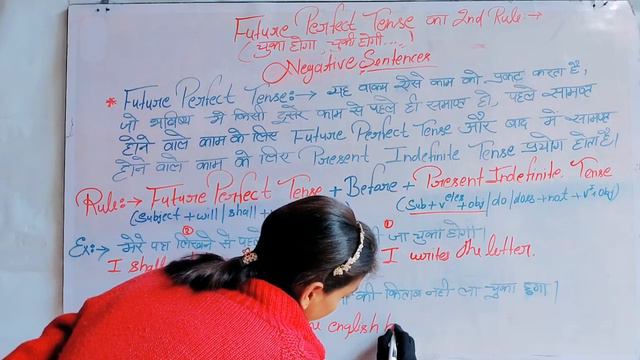 Future Perfect Tense का 2nd Rule:→
(चुका होगा, चुकी होगी....)
Negative Sentences
* Future Perfect Tense:→ यह वाक्य ऐसे काम को प्रकट करता है,
जो भविष्य में किसी दूसरे काम से पहले ही समाप्त हो, पहले समाप्त
होने वाले काम के लिए Future Perfect Tense और बाद में समाप्त
होने वाले काम के लिए Present Indefinite Tense प्रयोग होता है।
Rule:→ Future Perfect Tense + Before + Present Indefinite. Tense
(Subject + will/shall + (Sub + v es/s + obj/do/does + not + v¹ + obj)
Ex:→ मेरे पत्र लिखने से पहले जा चुकी होगी।
I shall I writes the letter.
की किताब नही ला चुका हूगा।
english